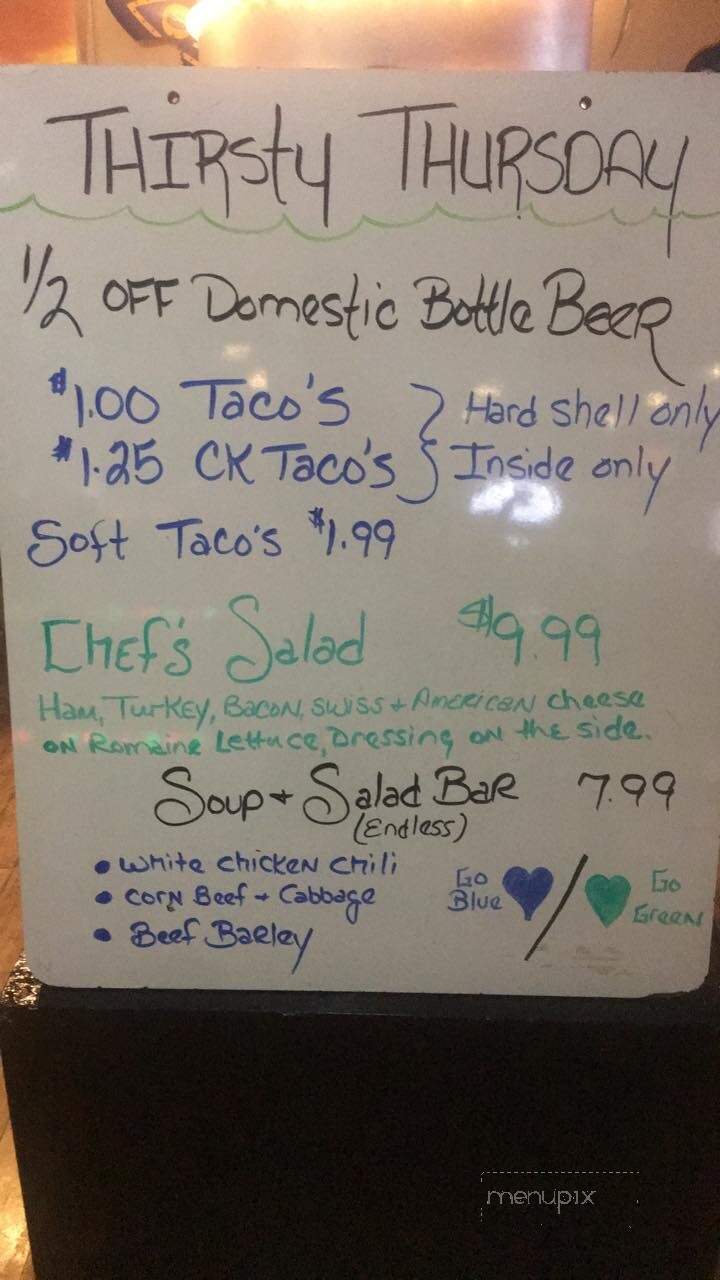 THIRSty THURSDAY
1/2 OFF Domestic Bottle BeeR
$1.00 Taco's } Hard shell only
$1.25 CK Taco's } Inside only
Soft Taco's $1.99
Chef's Salad $9.99
Ham, Turkey, Bacon, Swiss + American cheese
on Romaine Lettuce, Dressing on the side.
Soup + Salad Bar 7.99
(Endless)
• White chicken chili
• Corn Beef + Cabbage
• Beef Barley
Go Blue / Go Green
menupix